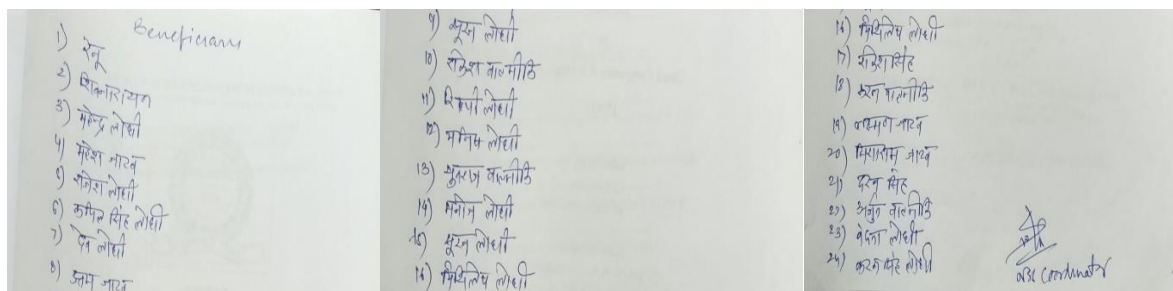 Beneficiary
1) रेनू
2) शिवनारायन
3) महेन्द्र लोधी
4) महेश जाटव
5) राजेश लोधी
6) कपिल सिंह लोधी
7) देव लोधी
8) जाटव
9) सूरज लोधी
10) राकेश वाल्मीकि
11) लोधी
12) मनीष लोधी
13) युवराज वाल्मीकि
14) मनोज लोधी
15) सूरज लोधी
16) मिथिलेश लोधी
16) मिथिलेश लोधी
17) राकेश सिंह
18) करन वाल्मीकि
19) लक्ष्मण जाटव
20) सियाराम जाटव
21) सिंह
22) अर्जुन वाल्मीकि
23) लोधी
24) करन सिंह लोधी
Coordinator